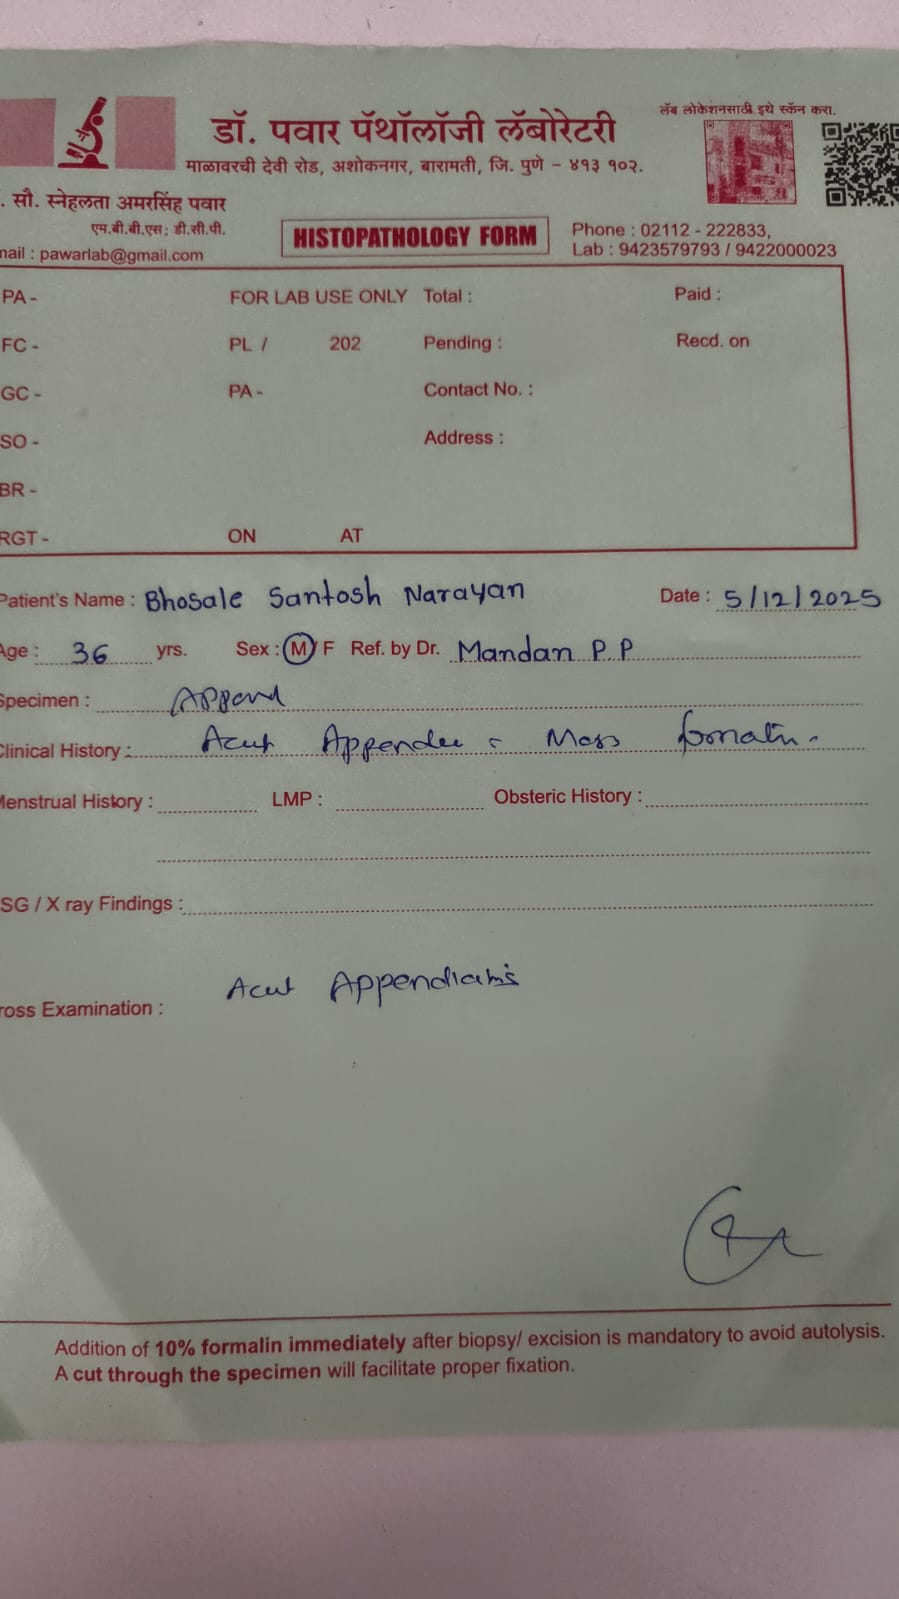 लॅब लोकेशनसाठी इथे स्कॅन करा.
डॉ. पवार पॅथॉलॉजी लॅबोरेटरी
माळावरची देवी रोड, अशोकनगर, बारामती, जि. पुणे - ४१३ १०२.
. सौ. स्नेहलता अमरसिंह पवार
एम.बी.बी.एस; डी.सी.पी.
nail : pawarlab@gmail.com
HISTOPATHOLOGY FORM
Phone : 02112 - 222833,
Lab : 9423579793 / 9422000023
PA - FOR LAB USE ONLY Total : Paid :
FC - PL / 202 Pending : Recd. on
GC - PA - Contact No. :
SO - Address :
BR -
RGT - ON AT
Patient's Name : Bhosale Santosh Narayan Date : 5/12/2025
Age : 36 yrs. Sex : M / F Ref. by Dr. Mandan P.P
Specimen :
Clinical History : Mass formatin.
Menstrual History : LMP : Obsteric History :
SG / X ray Findings :
Acut
ross Examination :
Addition of 10% formalin immediately after biopsy/ excision is mandatory to avoid autolysis.
A cut through the specimen will facilitate proper fixation.